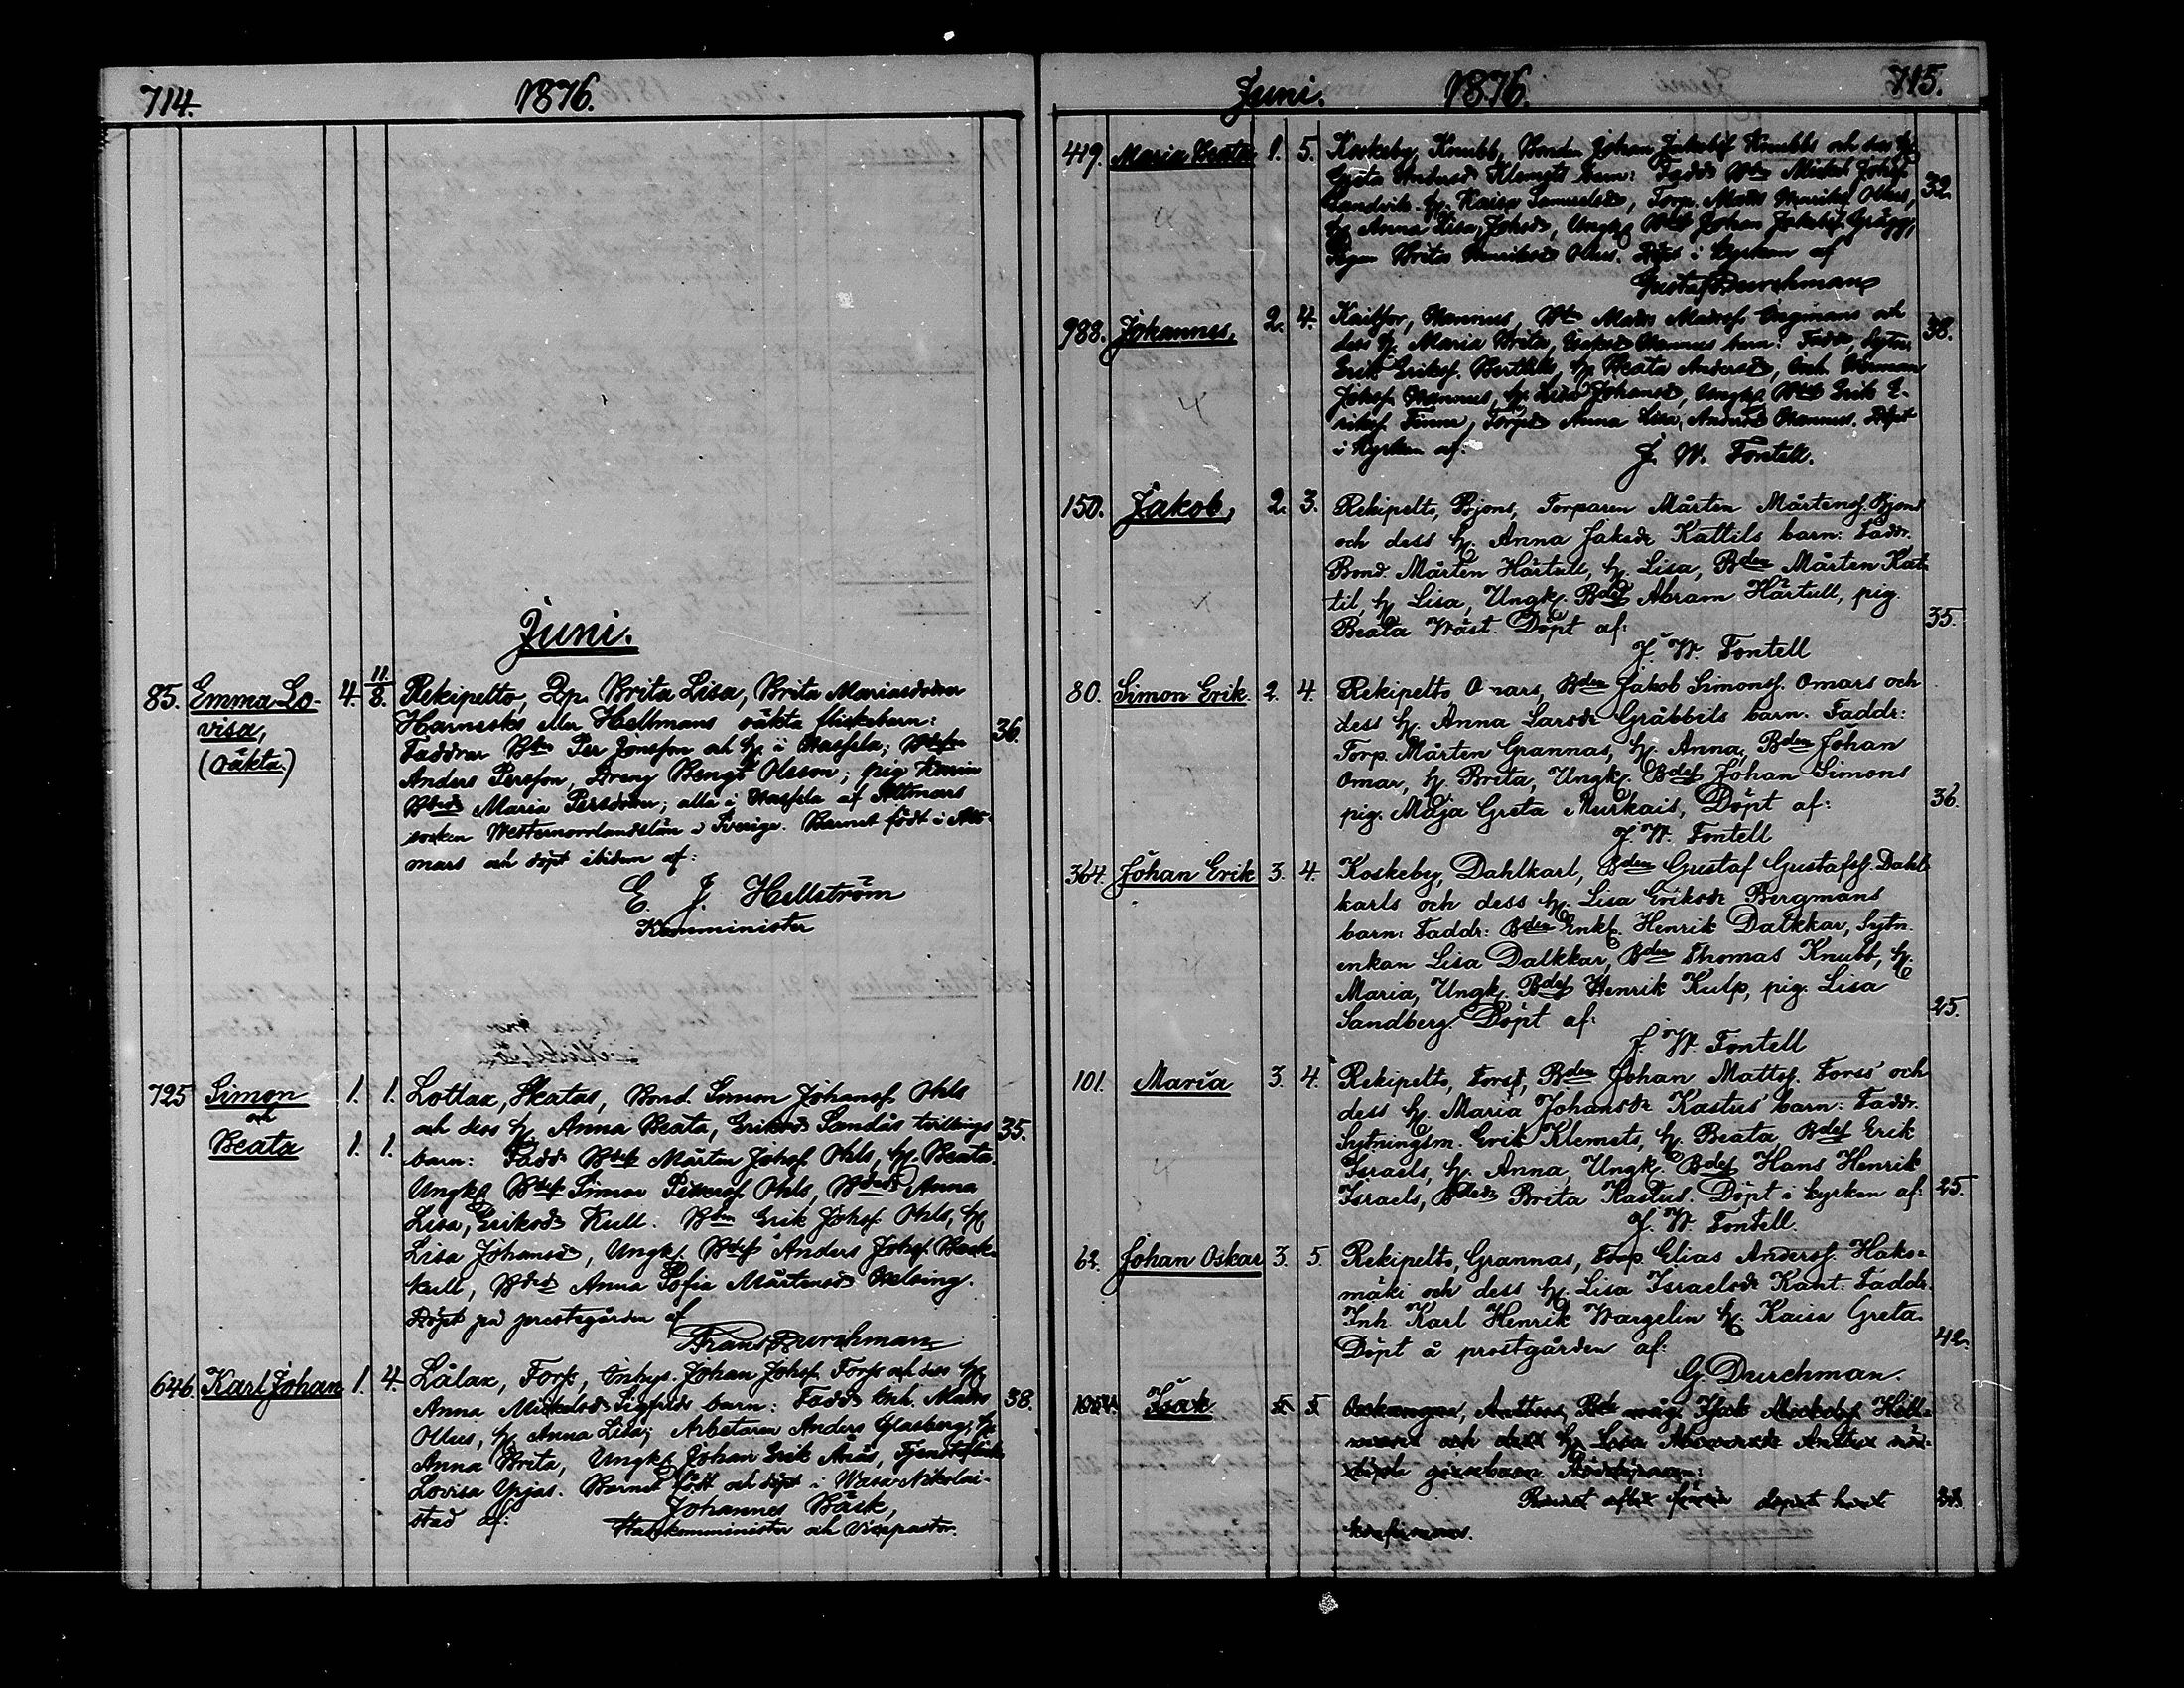 714. 1876.
Juni.
85. Emma Lo- 4. 11/8. Rekipelto, Brita Lisa, Brita Mariasdotter
visa, Harnesks eller Hellmans oäkta flickebarn:
(oäkta) Faddrar Bdn Per Jonsson och h. i Wasfela; 36.
Anders Persson, Dreng Bengt Olsson; pig
Maria Persdotter; alla i af Attmars
socken Westernorrlandslän i Sverige. Barnet födt i Att-
mars och döpt ibidem af:
E. J. Hellström
Komminister
725 Simon 1. 1. Lottax, Skatas, Bond. Simon Johansf. Ohls
och och dess h. Anna Beata, Eriksdr Sandås tvillings 35.
Beata 1. 1. barn: Fadd. Mårten Johsf. Ohls, h. Beata.
Ungk. Bdsf Simon Ohls, Anna
Lisa, Eriksdr Kull. Bdn Erik Johsf. Ohls, h.
Lisa Johansdr, Ungk. Bdsf Anders Johsf. Back-
kull, Anna Sofia Mårtensdr
Döpt på prestgården af
Frans Durchman
646. Karl Johan 1. 4. Lålax, Forss, Inhys. Johan Johsf. Forss och dess h.
Anna Mickelsdr Sigfrids barn: Fadd. Inh. Mats 38.
Ollus, h. Anna Lisa; Arbetaren Anders Glasberg, h.
Anna Brita, Ungk. Johan Erik Anås,
Lovisa Yrjas. Barnet födt och döpt i Wasa Nikolai-
stad af: Johannes Bäck,
komminister och Vicepastor.
Juni. 1876. 715.
419. Maria Beata 1. 5. Koskeby, Knubb, Bonden Johan Jakobsf. Knubbs och dess h.
Greta Andersdr Klemets barn: Fadd. Bdn Mickel Johsf.
Sandvik. h. Kaisa Samuelsdr, Torp. Matts Henriksf. Ollus, 32.
h. Anna Lisa Johsdr, Ungk. Bdsf Johan Jakobsf. Grägg,
Pigan Brita Henriksdr Ollus. Döpt i kyrkan af
Gustaf Durchman
988. Johannes, 2. 4. Kaitsor, Hannus, Bdn Matts Mattsf. Ingmans och
dess h. Maria Brita, Hannus barn: Fadd. Sytn. 38.
Erik Eriksf. Berthils, h. Beata Andersdr, Inh. Herman
Johsf. Hannus, h. Lisa Johansdr, Ungk. Bdsf Erik E-
riksf. Finne, Torpdr Anna Lisa, Andersdr Hannus. Döpt
i kyrkan af: J. W. Fontell.
150. Jakob, 2. 3. Rekipelto, Bjons, Torparen Mårten Mårtensf. Bjons
och dess h. Anna Jaksdr Kattils barn: Faddr.
Bond. Mårten Härtull, h. Lisa, Bden Mårten Kat-
til, h. Lisa, Ungk. Bdsf Abram Härtull, pig.
Beata Wäst. Döpt af: 35.
J. W. Fontell
80. Simon Erik. 2. 4. Rekipelto Omars, Bden Jakob Simonsf. Omars och
dess h. Anna Larsdr Gräbbils barn. Faddr:
Torp. Mårten Grannas, h. Anna, Bden Johan
Omar, h. Brita, Ungk. Bdsf Johan Simons
pig. Maja Greta Murkais, Döpt af: 36.
J. W. Fontell
364. Johan Erik 3. 4. Koskeby, Dahlkarl, Bden Gustaf Gustafsf. Dahl-
karls och dess h. Lisa Eriksdr Bergmans
barn: Faddr: Bden Enkl. Henrik Dalkkar, Sytn.
enkan Lisa Dalkkar, Bden Thomas Knubb, h.
Maria, Ungk. Bdsf Henrik Kulp, pig. Lisa
Sandberg. Döpt af: 25.
J. W. Fontell
101. Maria 3. 4. Rekipelto, Forss, Bden Johan Mattsf. Forss och
dess h. Maria Johansdr Kastus barn: Faddr.
Sytningsm. Erik Klemets, h. Beata, Bdsf Erik
Israels, h. Anna, Ungk. Bdsf Hans Henrik
Israels, Bdsdr Brita Kastus. Döpt i kyrkan af: 25.
J. W. Fontell.
62. Johan Oskar 3. 5. Rekipelto, Grannas, Torp. Elias Andersf. Hako-
mäki och dess h. Lisa Israelsdr Kant. Faddr.
Inh. Karl Henrik Wargelin h. Kaisa Greta.
Döpt å prostgården af: 42.
G. Durchman.
Isak 5. 5
och dess h. Lisa